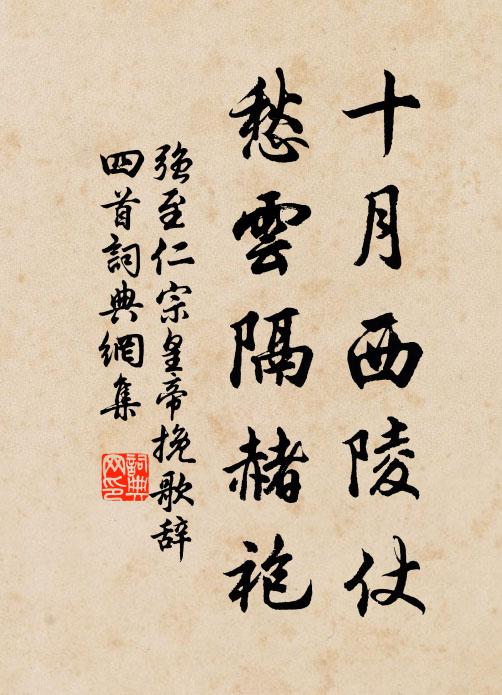 十月西陵仗
愁雲隔赭袍
強至仁宗皇帝挽歌辞
四首詞典網集
詞典
网印